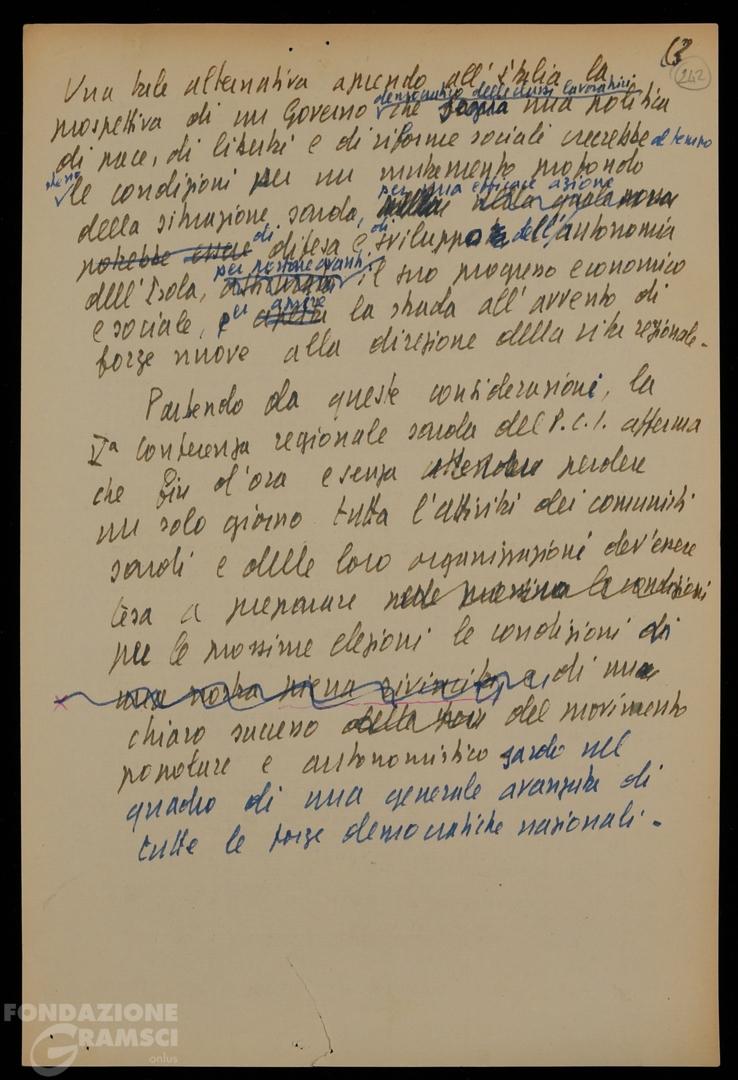 13
242
Una tale alternativa aprendo all'Italia la
democratico delle classi lavoratrici
prospettiva di un Governo che segua una politica
di pace, di libertà e di riforme sociali creerebbe al tempo
stesso le condizioni per un mutamento profondo
per una efficace azione
della situazione sarda, nella quale possa
potrebbe essere di difesa e di sviluppo dell'autonomia
per portare avanti
dell'Isola, assicurato il suo progresso economico
e sociale, per aprire aperta la strada all'avvento di
forze nuove alla direzione della vita regionale.
Partendo da queste considerazioni, la
Vª conferenza regionale sarda del P.C.I. afferma
che fin d'ora e senza attendere perdere
un solo giorno tutta l'attività dei comunisti
sardi e delle loro organizzazioni dev'essere
tesa a preparare nelle prossime le condizioni
per le prossime elezioni le condizioni di
una nostra piena rivincita, e di un
chiaro successo della del movimento
popolare e autonomistico sardo nel
quadro di una generale avanzata di
tutte le forze democratiche nazionali.
FONDAZIONE
GRAMSCI
onlus